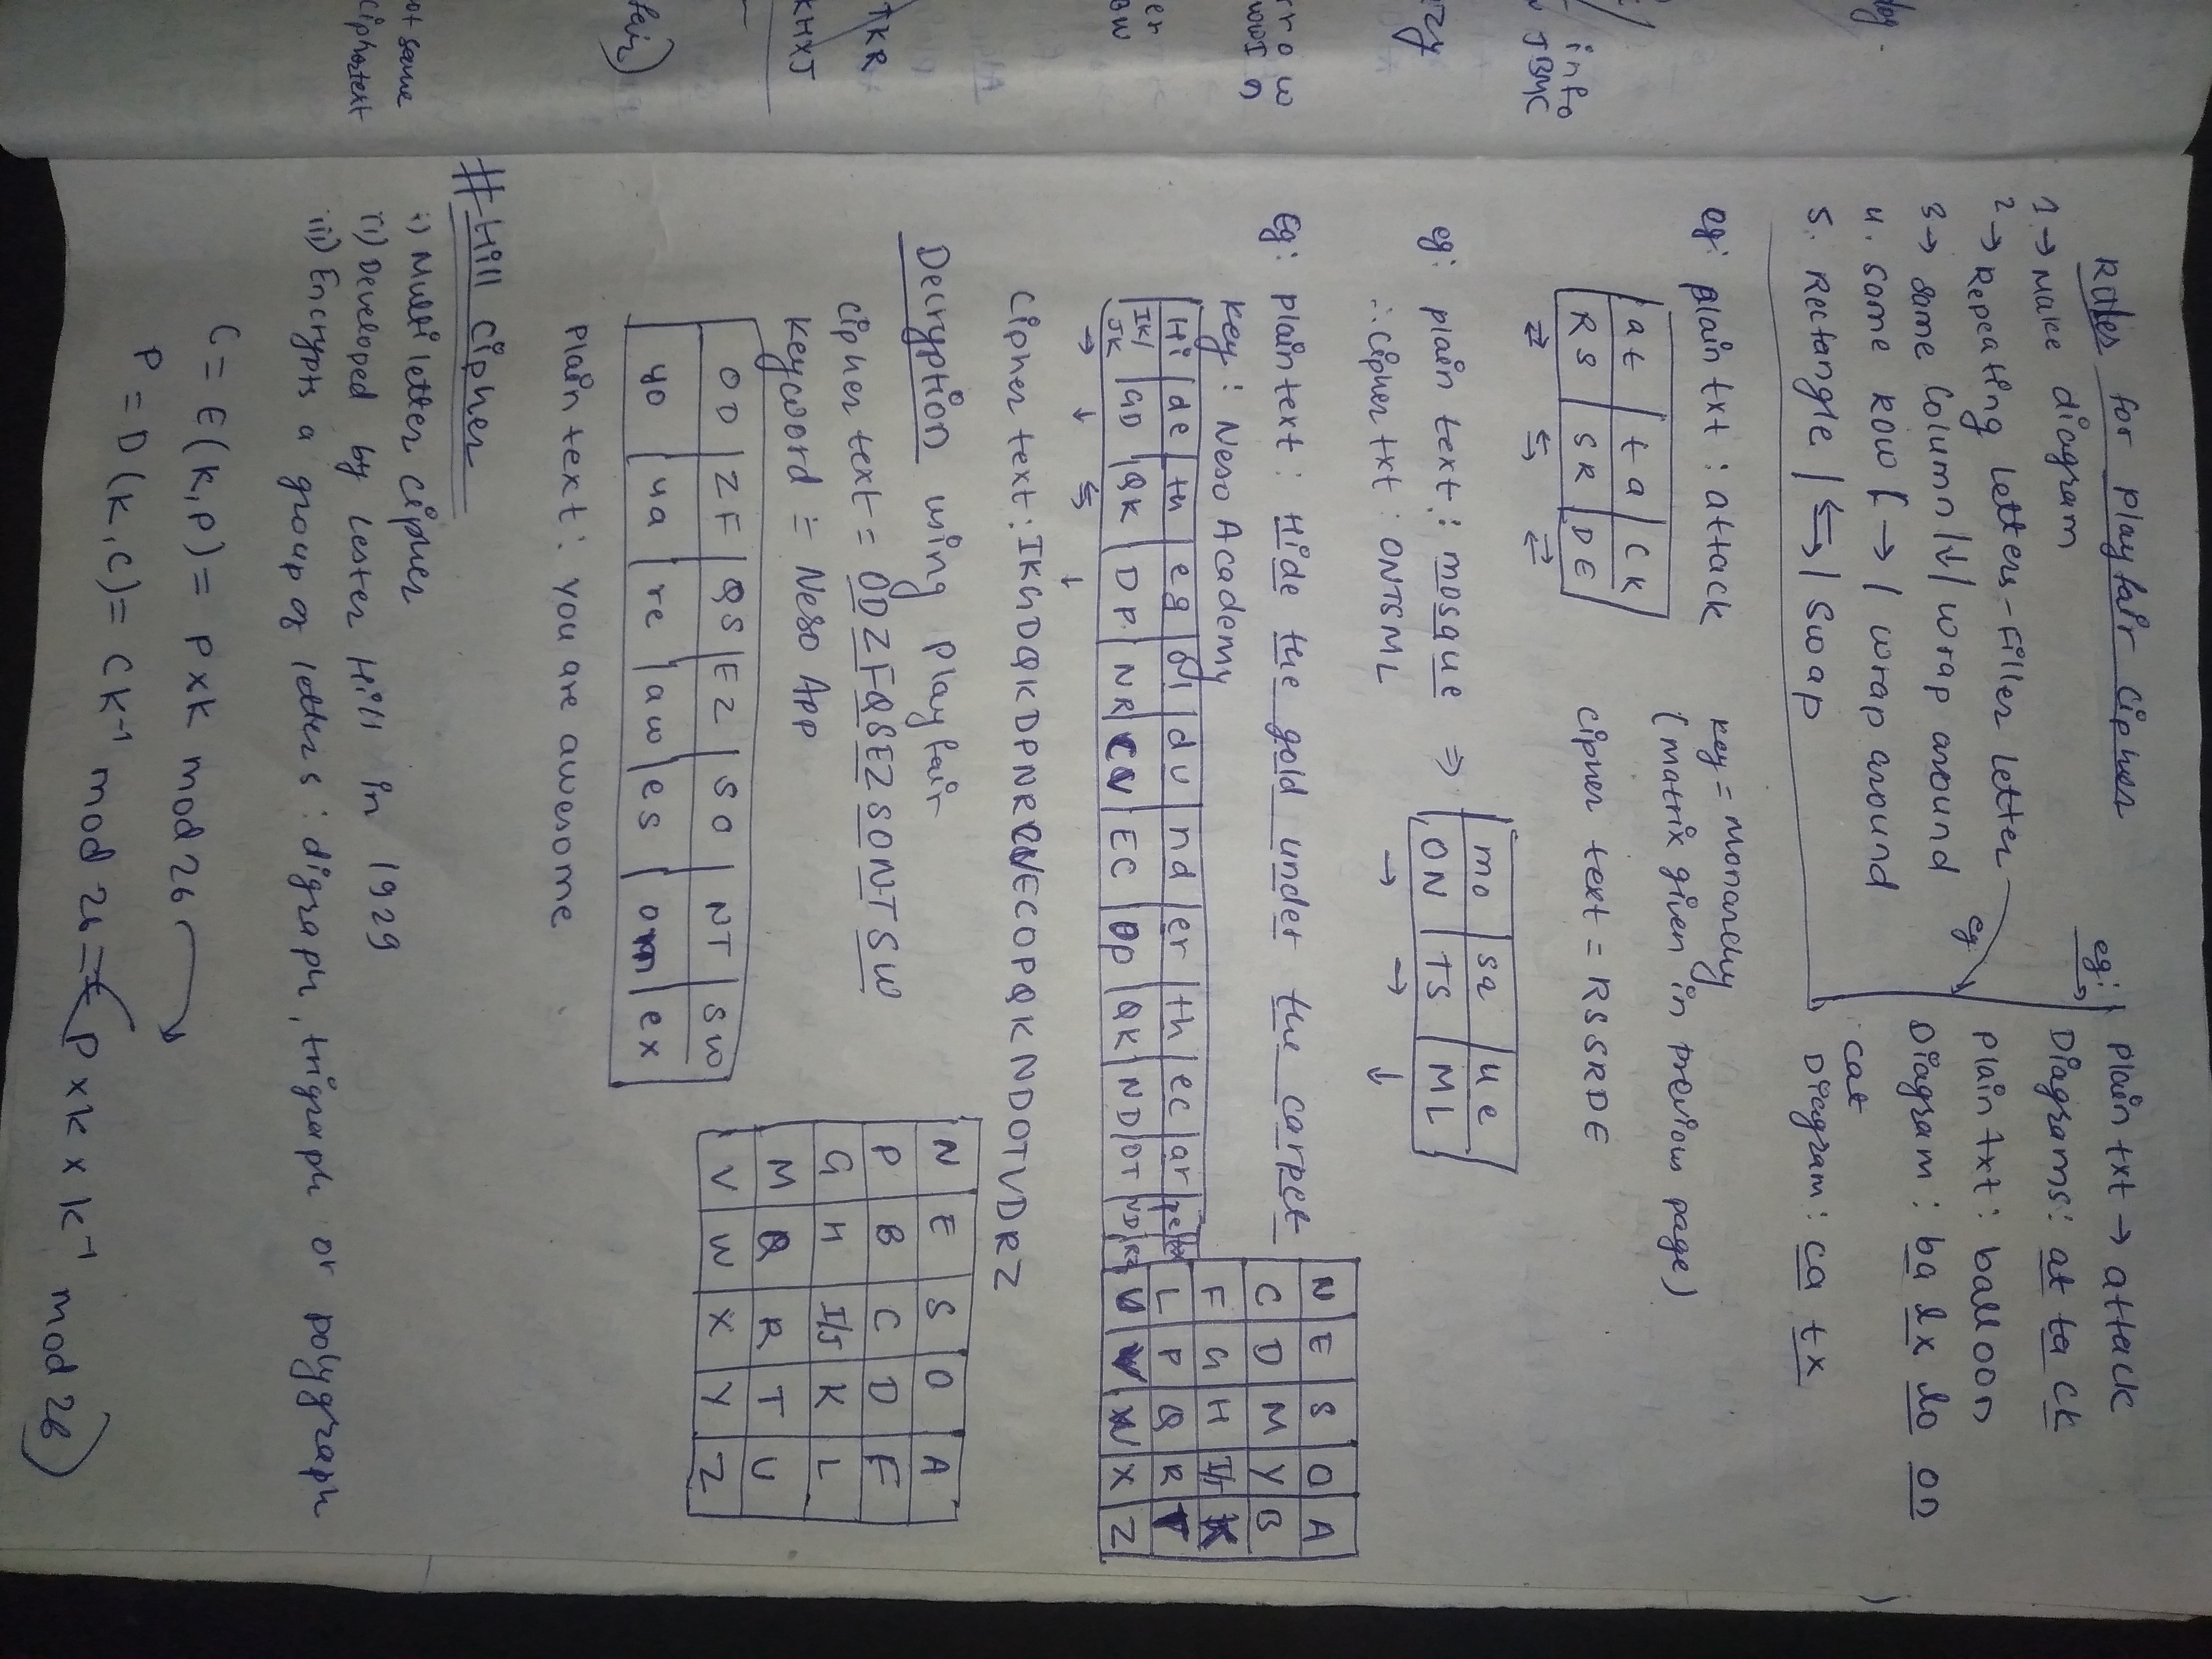 Rules for playfair cipher
1. → Make diagram
2 → Repeating letters - Filler letter
3 → Same Column |↓| wrap around
4. Same Row | → | wrap around
5. Rectangle | ⇆ | Swap
eg: plain txt → attack
Diagrams: at ta ck
eg plain txt: balloon
Diagram: ba lx lo on
cat
Diagram: ca tx
eg: plain txt: attack
key = monarchy
(matrix given in previous page)
at | ta | ck
RS | SR | DE
cipher text = RSSRDE
eg: plain text: mosque ⇒
mo | sq | ue
ON | TS | ML
∴ cipher txt: ONTSML
eg: plaintext: Hide the gold under the carpet
Key: Neso Academy
Hi | de | th | eg | ol | du | nd | er | th | ec | ar | pe | tx
IK/JK | GD | QK | DP | NR | CV | EC | OP | QK | ND | OT | VD | RZ
N E S O A
C D M Y B
F G H I/J K
L P Q R T
U V W X Z
cipher text: IKGDQKDPNRCVECOPQKNDOTVDRZ
Decryption using playfair
cipher text = ODZFQSEZSONTSW
Keyword = Neso App
OD | ZF | QS | EZ | SO | NT | SW
yo | ua | re | aw | es | om | ex
N E S O A
P B C D F
G H I/J K L
M Q R T U
V W X Y Z
plain text: you are awesome
# Hill cipher
i) Multi letter cipher
ii) Developed by Lester Hill in 1929
iii) Encrypts a group of letters: digraph, trigraph or polygraph
C = E(K,P) = P×K mod 26
P = D(K,C) = CK⁻¹ mod 26 = (P×K×K⁻¹ mod 26)
info
JBMC
rrow
TKR
KHXJ
fair)
ot same
ciphertext